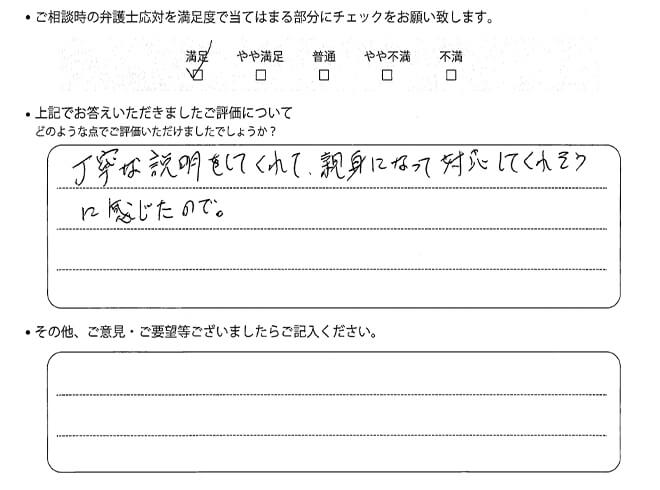 • ご相談時の弁護士応対を満足度で当てはまる部分にチェックをお願い致します。
満足 やや満足 普通 やや不満 不満
• 上記でお答えいただきましたご評価について
どのような点でご評価いただけましたでしょうか？
丁寧な説明をしてくれて、親身になって対応してくれそう
に感じたので。
• その他、ご意見・ご要望等ございましたらご記入ください。